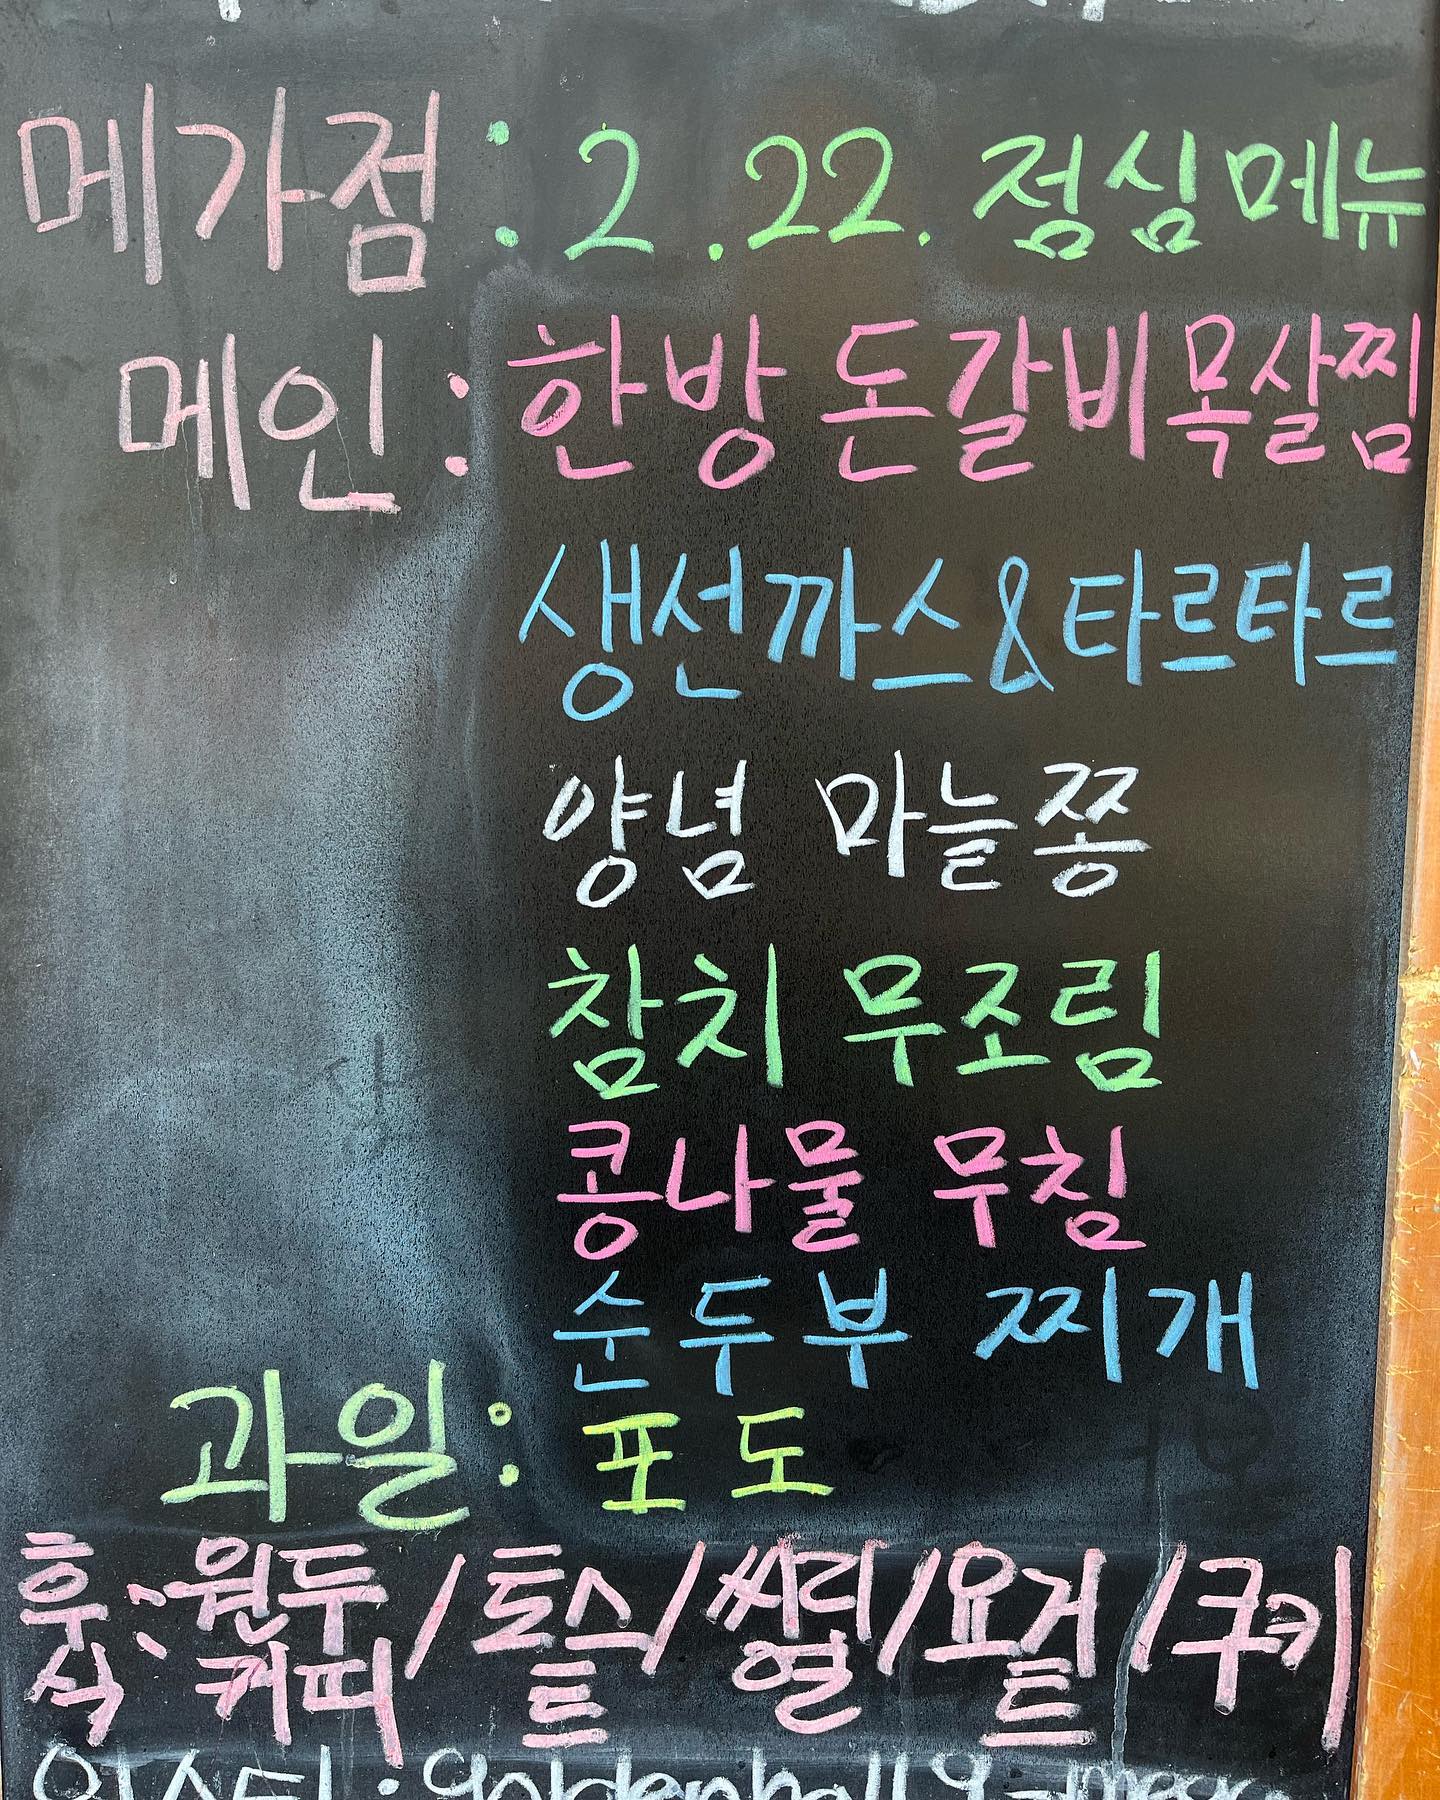 메가점 : 2.22. 점심메뉴
메인 : 한방 돈갈비목살찜
생선까스&타르타르
양념 마늘쫑
참치 무조림
콩나물 무침
순두부 찌개
과일 : 포도
후식 : 원두커피 / 토스트 / 씨리얼 / 요거트 / 쿠키